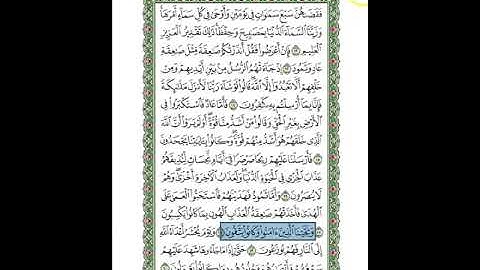 فَقَضَىٰهُنَّ سَبْعَ سَمَٰوَاتٍ فِى يَوْمَيْنِ وَأَوْحَىٰ فِى كُلِّ سَمَآءٍ أَمْرَهَا
وَزَيَّنَّا ٱلسَّمَآءَ ٱلدُّنْيَا بِمَصَٰبِيحَ وَحِفْظًا ذَٰلِكَ تَقْدِيرُ ٱلْعَزِيزِ
ٱلْعَلِيمِ ١٢ فَإِنْ أَعْرَضُوا۟ فَقُلْ أَنذَرْتُكُمْ صَٰعِقَةً مِّثْلَ صَٰعِقَةِ
عَادٍ وَثَمُودَ ١٣ إِذْ جَآءَتْهُمُ ٱلرُّسُلُ مِنۢ بَيْنِ أَيْدِيهِمْ وَمِنْ
خَلْفِهِمْ أَلَّا تَعْبُدُوٓا۟ إِلَّا ٱللَّهَ قَالُوا۟ لَوْ شَآءَ رَبُّنَا لَأَنزَلَ مَلَٰٓئِكَةً
فَإِنَّا بِمَآ أُرْسِلْتُم بِهِۦ كَٰفِرُونَ ١٤ فَأَمَّا عَادٌ فَٱسْتَكْبَرُوا۟ فِى
ٱلْأَرْضِ بِغَيْرِ ٱلْحَقِّ وَقَالُوا۟ مَنْ أَشَدُّ مِنَّا قُوَّةً أَوَلَمْ يَرَوْا۟ أَنَّ ٱللَّهَ
ٱلَّذِى خَلَقَهُمْ هُوَ أَشَدُّ مِنْهُمْ قُوَّةً وَكَانُوا۟ بِـَٔايَٰتِنَا يَجْحَدُونَ
١٥ فَأَرْسَلْنَا عَلَيْهِمْ رِيحًا صَرْصَرًا فِىٓ أَيَّامٍ نَّحِسَاتٍ لِّنُذِيقَهُمْ
عَذَابَ ٱلْخِزْىِ فِى ٱلْحَيَوٰةِ ٱلدُّنْيَا وَلَعَذَابُ ٱلْءَاخِرَةِ أَخْزَىٰ وَهُمْ
لَا يُنصَرُونَ ١٦ وَأَمَّا ثَمُودُ فَهَدَيْنَٰهُمْ فَٱسْتَحَبُّوا۟ ٱلْعَمَىٰ عَلَى
ٱلْهُدَىٰ فَأَخَذَتْهُمْ صَٰعِقَةُ ٱلْعَذَابِ ٱلْهُونِ بِمَا كَانُوا۟ يَكْسِبُونَ
١٧ وَنَجَّيْنَا ٱلَّذِينَ ءَامَنُوا۟ وَكَانُوا۟ يَتَّقُونَ ١٨ وَيَوْمَ يُحْشَرُ أَعْدَآءُ ٱللَّهِ
إِلَى ٱلنَّارِ فَهُمْ يُوزَعُونَ ١٩ حَتَّىٰٓ إِذَا مَا جَآءُوهَا شَهِدَ عَلَيْهِمْ
سَمْعُهُمْ وَأَبْصَٰرُهُمْ وَجُلُودُهُم بِمَا كَانُوا۟ يَعْمَلُونَ ٢٠